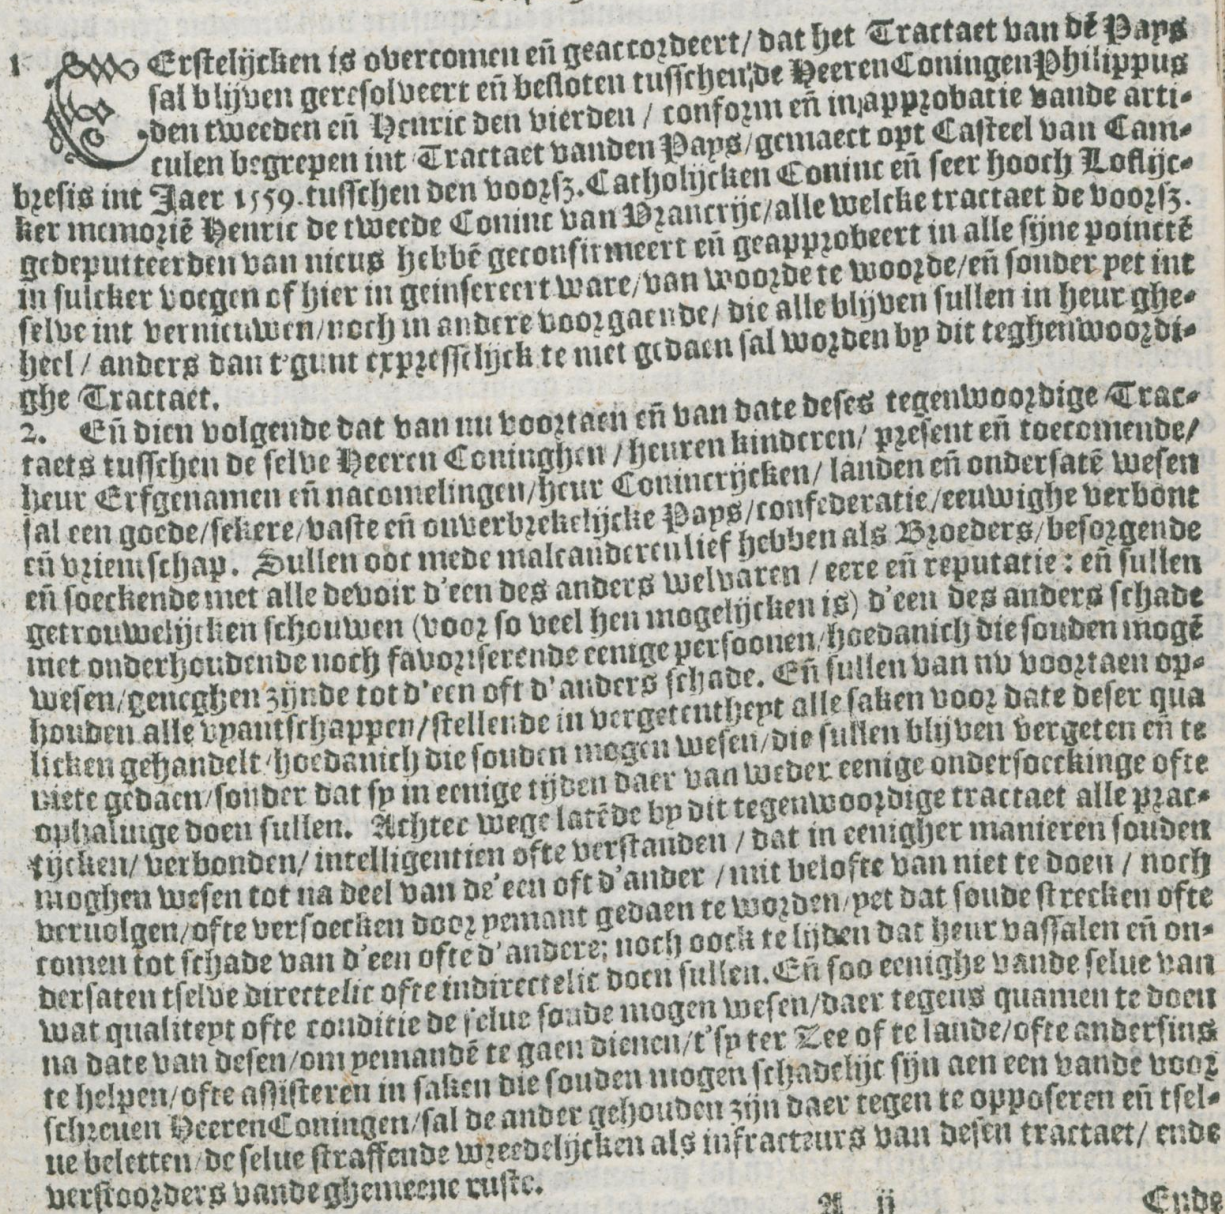 1 Erstelijcken is overcomen eñ geaccordeert/ dat het Tractaet van dē Pays
sal blijven geresolveert eñ besloten tusschen de Heeren Coningen Philippus
den tweeden eñ Henric den vierden / conform eñ in approbatie vande arti-
culen begrepen int Tractaet vanden Pays/ gemaect opt Casteel van Cam-
bresis int Jaer 1559. tusschen den voorsz. Catholijcken Coninc eñ seer hooch Loflijc-
ker memoriē Henric de tweede Coninc van Vrancrijc/ alle welcke tractaet de voorsz.
gedeputteerden van nieus hebbē geconfirmeert eñ geapprobeert in alle sijne poinctē
in sulcker voegen of hier in geinsereert ware/ van woorde te woorde/ eñ sonder yet int
selve int vernieuwen/ noch in andere voorgaende/ die alle blijven sullen in heur ghe-
heel / anders dan t'gunt expresselijck te niet gedaen sal worden by dit teghenwoordi-
ghe Tractaet.
2. Eñ dien volgende dat van nu voortaen eñ van date deses tegenwoordige Trac-
taets tusschen de selve Heeren Coninghen / heuren kinderen/ present eñ toecomende/
heur Erfgenamen eñ nacomelingen/ heur Conincrijcken/ landen eñ ondersatē wesen
sal een goede/ sekere/ vaste eñ onverbrekelijcke Pays/ confederatie/ eeuwighe verbont
eñ vrientschap. Sullen ooc mede malcanderen lief hebben als Broeders/ besorgende
eñ soeckende met alle devoir d'een des anders welvaren / eere eñ reputatie : eñ sullen
getrouwelijcken schouwen (voor so veel hen mogelijcken is) d'een des anders schade
niet onderhoudende noch favoriserende eenige persoonen/ hoedanich die souden mogē
wesen/ geneghen zijnde tot d'een oft d'anders schade. Eñ sullen van nv voortaen op-
houden alle vyantschappen/ stellende in vergetentheyt alle saken voor date deser qua
licken gehandelt/ hoedanich die souden mogen wesen/ die sullen blijven vergeten eñ te
niete gedaen/ sonder dat sy in eenige tijden daer van weder eenige ondersoeckinge ofte
ophalinge doen sullen. Achter wege latēde by dit tegenwoordige tractaet alle prac-
tijcken/ verbonden/ intelligentien ofte verstanden / dat in eenigher manieren souden
moghen wesen tot na deel van de'een oft d'ander / mit belofte van niet te doen / noch
veruolgen/ ofte versoecken door yemant gedaen te worden/ yet dat soude strecken ofte
comen tot schade van d'een ofte d'andere; noch oock te lijden dat heur vassalen eñ on-
dersaten tselve directelic ofte indirectelic doen sullen. Eñ soo eenighe vande selue van
wat qualiteyt ofte conditie de selue soude mogen wesen/ daer tegens quamen te doen
na date van desen/ om yemandē te gaen dienen/ t'sy ter Zee of te lande/ ofte andersins
te helpen/ ofte assisteren in saken die souden mogen schadelijc sijn aen een vande voor
schreuen Heeren Coningen/ sal de ander gehouden zijn daer tegen te opposeren eñ tsel-
ue beletten/ de selue straffende wreedelijcken als infracteurs van desen tractaet/ ende
verstoorders vande ghemeene ruste.
A ij Ende